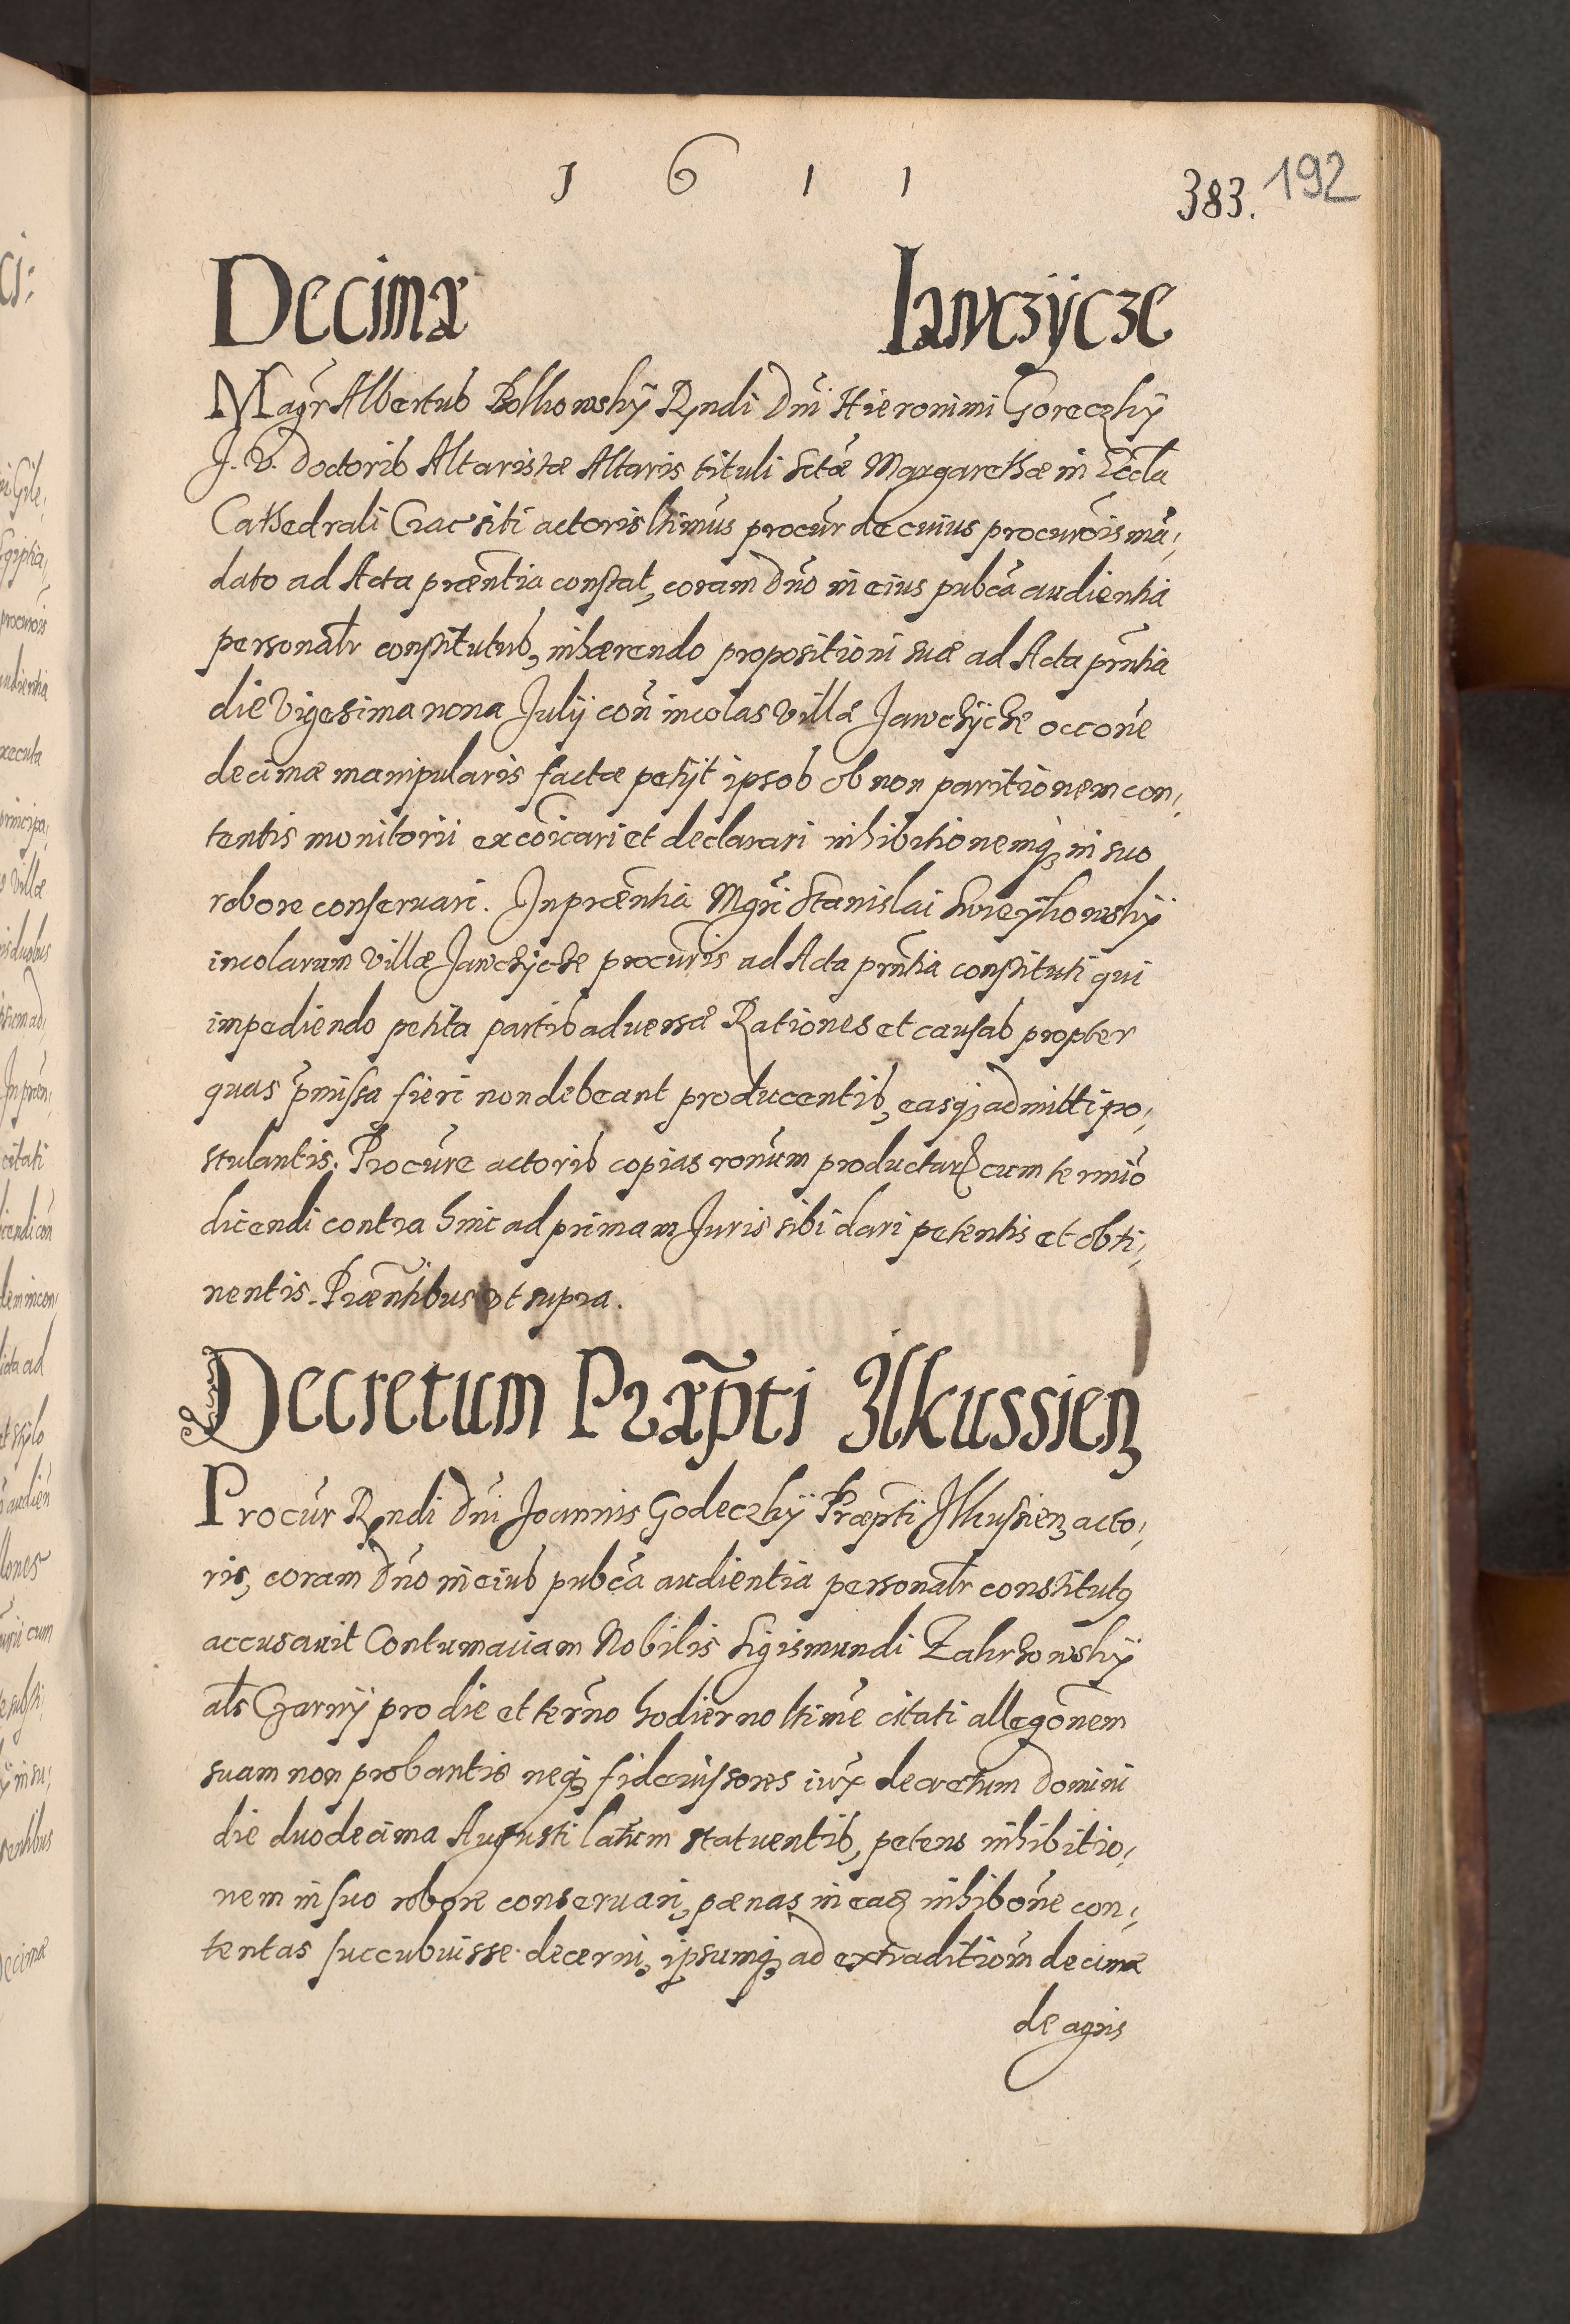 1 6 1 1
383. 192
Decimæ Iawczÿcze
Magr̃ Albertus Bolkowskÿ Rṇdi Dn̄i Hieronimi Goreczkÿ
J. V. Doctoris Altaristæ Altaris tituli Sctæ Margarethæ in Eccla
Cathedrali Crac siti actoris ltimus procur de cuius procurōis mā,
dato ad Acta præntia constat, coram Dn̄o in eius pubca audientia
personaltr constitutus, inhærendo propositioni suæ ad Acta prn̄tia
die Vigesima nona Julij con̄ incolas Villæ Jawczÿcze occōne
decimæ manipularis factæ petijt ipsos ob non paritionem con,
tentis monitorii excōicari et declarari inhibitionemq̨ in suo
robore conservari. In præn̄tia Mgr̄i Stanislai Swieÿkowskÿ
incolarum Villæ Jawczÿcze procur̄is ad Acta prn̄tia constituti qui
impediendo petita partis adversæ Rationes et causas propter
quas p̄missa fieri non debeant producentis, easq̨ admitti po,
stulantis. Procur̄e actoris copias ronum productarꝝ cum termīo
dicendi contra hinc ad primam Juris sibi dari petentis et obti,
nentis. Præn̄tibus ut supra.
Decretum Præp̄ti Ilkussien̨
Procur̄ Rṇdi Dn̄i Joannis Godeczkÿ Præpti Ilkusien̨ acto,
ris, coram Dn̄o in eius pubca audientia personaltr constitutꝰ
accusavit Contumaciam Nobilis Sigismundi Zakrzowskÿ
als Czarnÿ pro die et ter̄no hodierno ltime citati allegōnem
suam non probantis neq̨ fideiussores iux decretum Domini
die duodecima Augusti latum statuentis, petens inhibitio,
nem in suo robore conservari, pænas in eadꝫ inhibōne con,
tentas succubuisse decerni, ipsumq̨ ad extraditiōm decimæ
de agris